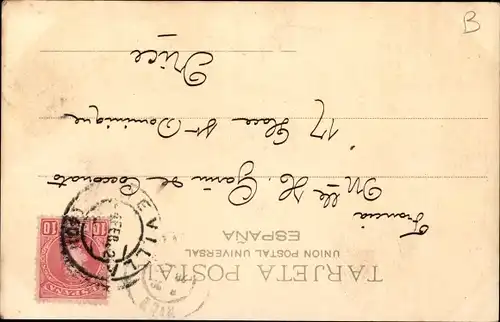 TARJETA POSTAL
UNION POSTAL UNIVERSAL
ESPAÑA
Francia
Mlle H. Garin de Cocconato
17 Place St Dominique
Nice
SEVILLA
FEB
10 10
ESPAÑA
B